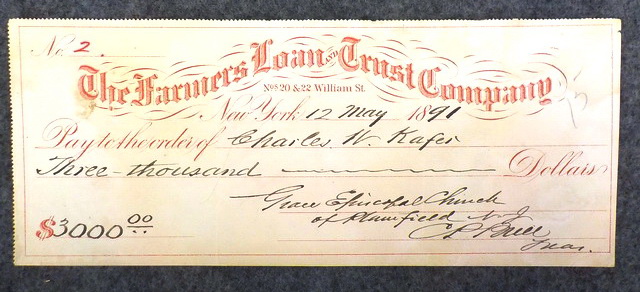 No. 2.
The Farmers Loan and Trust Company
Nos 20 & 22 William St.
New York 12 May 1891
Pay to the order of Charles W. Kafer
Three-thousand Dollars
Grace Episcopal Church
of Plainfield N.J.
$3000 00
Treas.